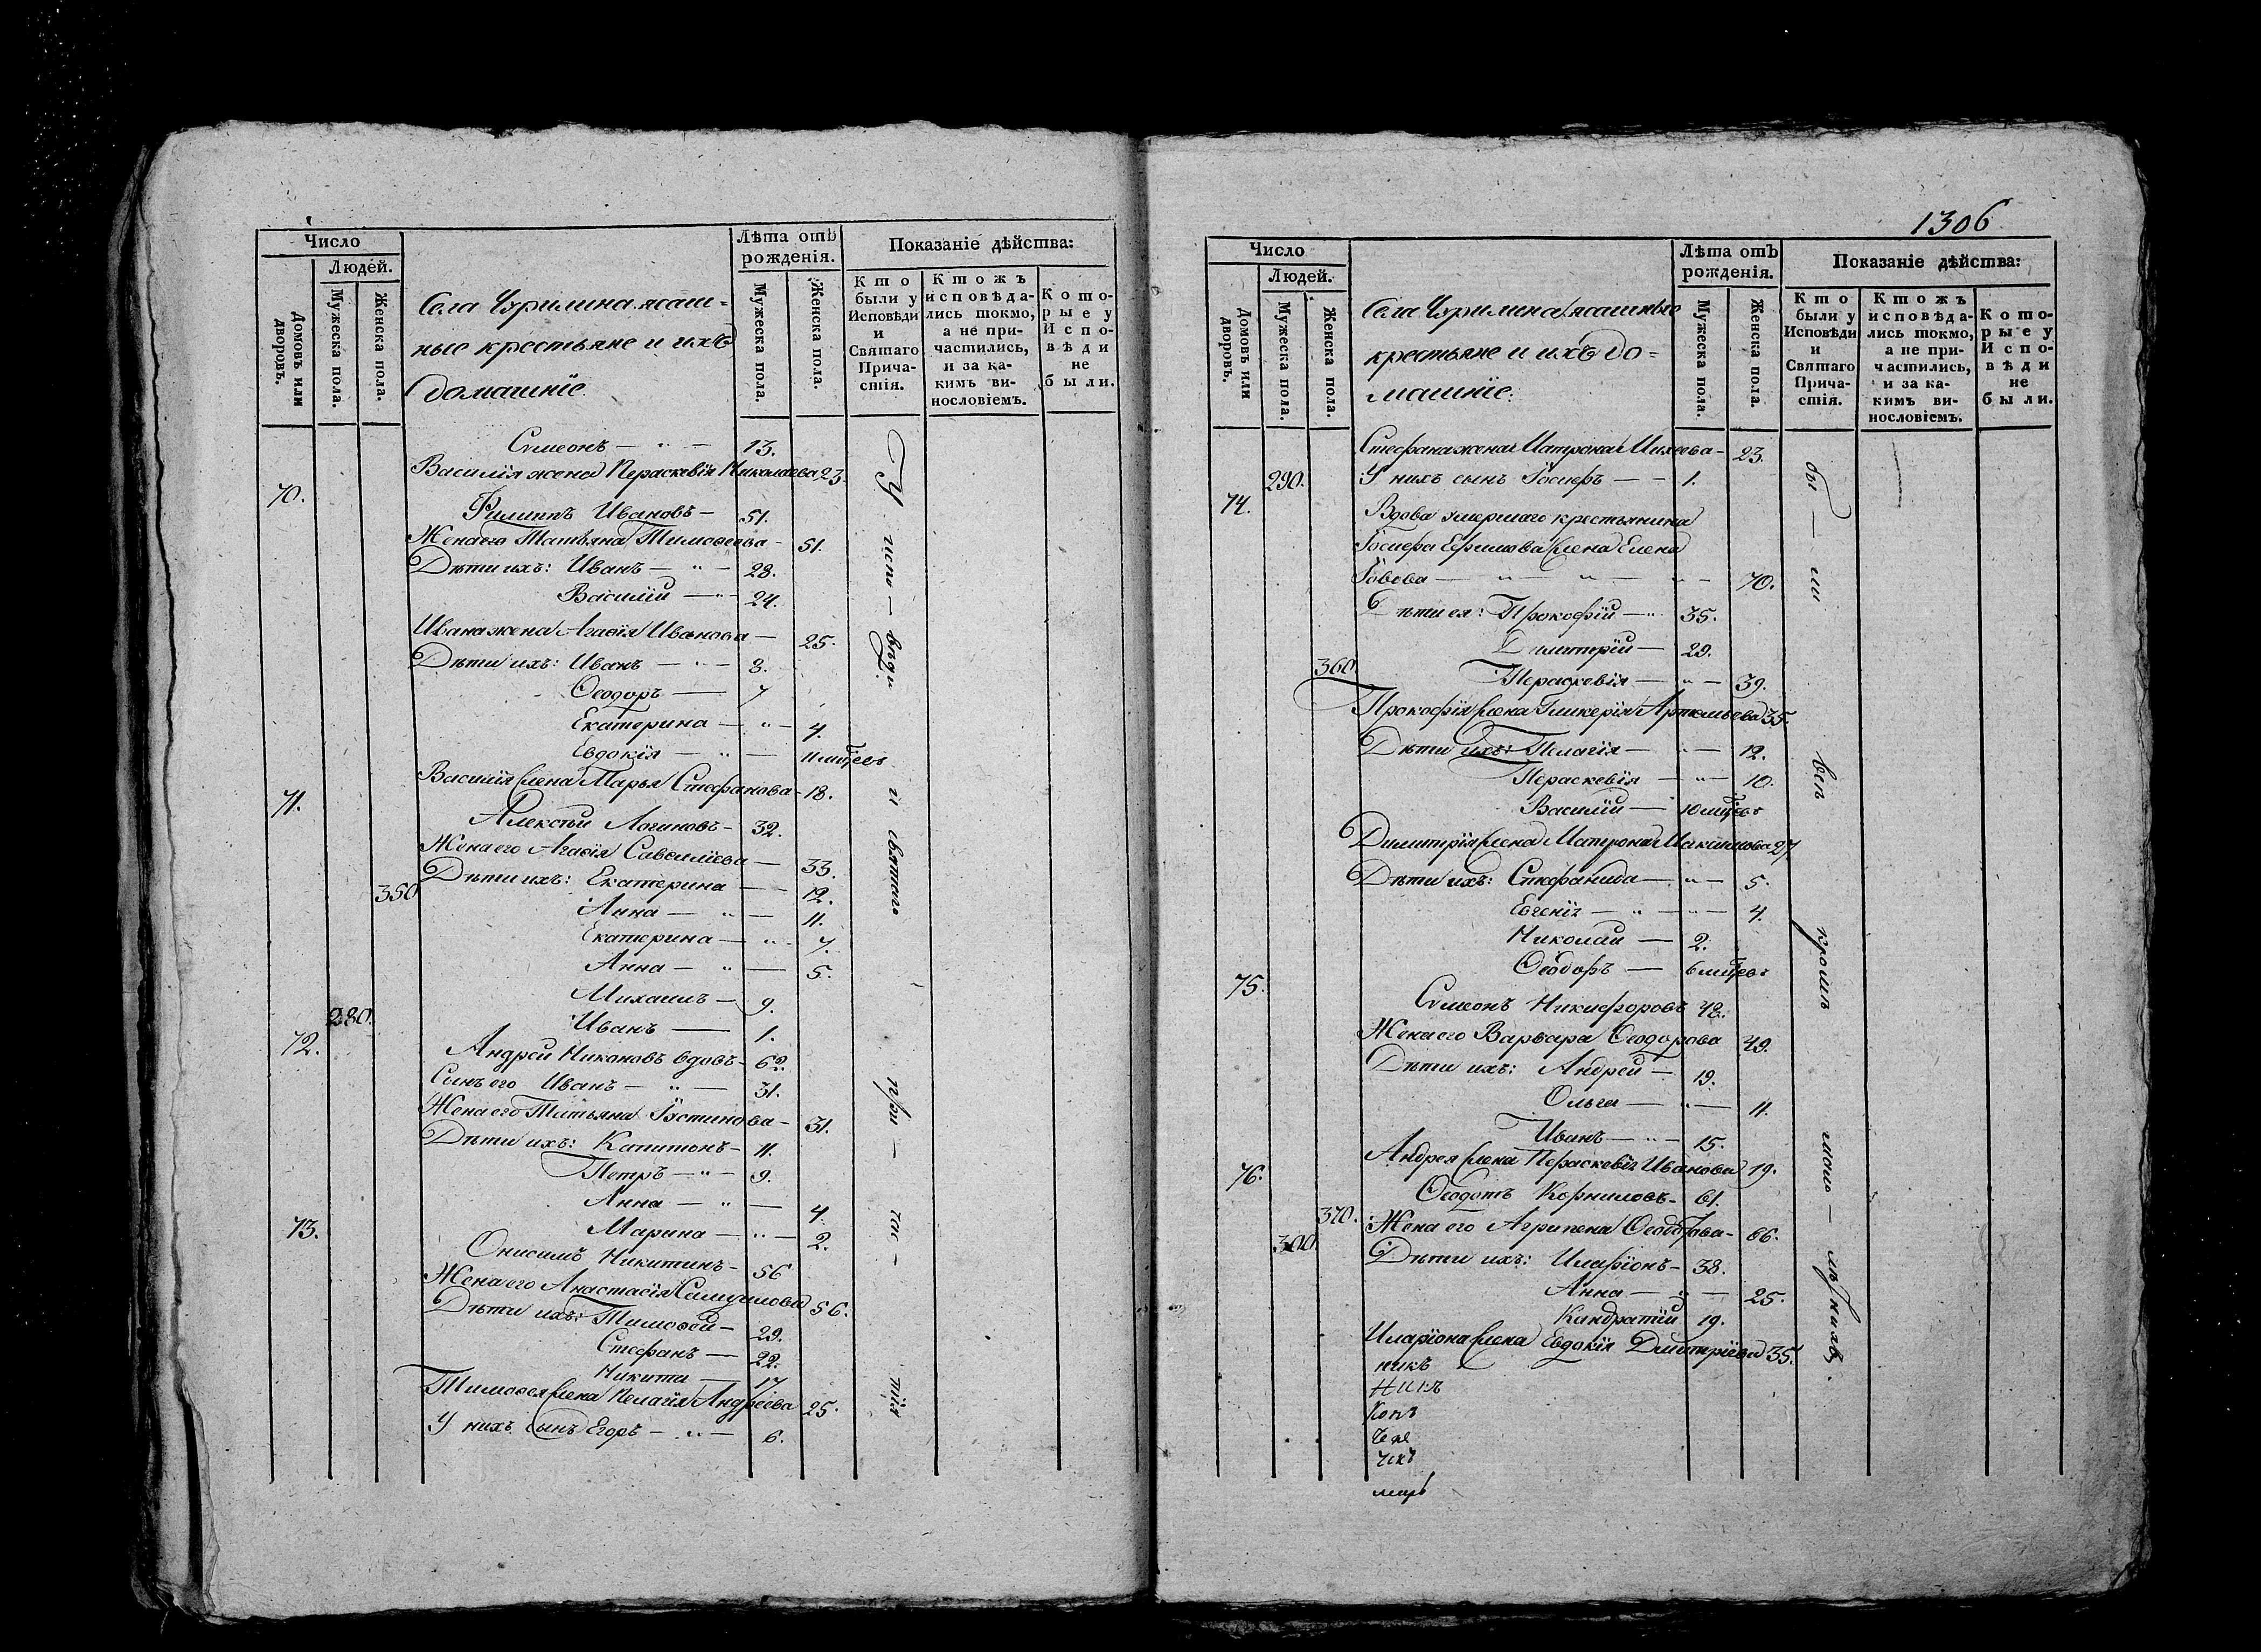 Число
Людей.
Домовъ или дворовъ.
Мужеска пола.
Женска пола.
Села Чурилина ясаш-
ные крестьяне и ихъ
домашніе.
Лѣта отъ рожденія.
Мужеска пола.
Женска пола.
Показаніе дѣйства:
Кто были у Исповѣди и Святаго Причастія.
Ктожъ исповѣдались токмо, а не причастились, и за какимъ винословіемъ.
Которые у Исповѣди не были.
Сѵмеонъ — " — 13.
Василія жена Пераскевія Николаева 23.
70.
Филиппъ Ивановъ — 51.
Жена его Татьяна Тимофеева — 51.
Дѣти ихъ: Иванъ — " — 28.
Василій — " — 24.
Ивана жена Агафія Иванова — 25.
Дѣти ихъ: Иванъ — " — 8.
Ѳеодоръ — 7
Екатерина — " — 4.
Евдокія — " — 11 мѣсяцевъ
Василія жена Марья Стефанова — 18.
71.
Алексѣй Логиновъ — 32.
Жена его Агафія Савелиева — 33.
Дѣти ихъ: Екатерина — 12.
350
Анна — " — 11.
Екатерина — " — 7.
Анна — " — 5.
Михаилъ — 9.
280. Иванъ — 1.
72.
Андрей Никоновъ вдовъ — 62.
Сынъ его Иванъ — " — 31.
Жена его Татьяна Іустинова — 31.
Дѣти ихъ: Капитонъ — 11.
Петръ — " — 9.
Анна — " — 4.
Марина — " — 2.
73.
Онисимъ Никитинъ — 56
Жена его Анастасія Самуилова 56.
Дѣти ихъ: Тимофей — 29.
Стефанъ — 22.
Никита — 17
Тимофея жена Пелагія Андреева 25.
У нихъ сынъ Егоръ — " — 6.
У испо — вѣди и святаго при — час — тія
1306
Число
Людей.
Домовъ или дворовъ.
Мужеска пола.
Женска пола.
Села Чурилина ясашные
крестьяне и ихъ до=
машніе:
Лѣта отъ рожденія.
Мужеска пола.
Женска пола.
Показаніе дѣйства:
Кто были у Исповѣди и Святаго Причастія.
Ктожъ исповѣдались токмо, а не причастились, и за какимъ винословіемъ.
Которые у Исповѣди не были.
Стефана жена Матрона Михеева — 23.
290. У нихъ сынъ Іосифъ — — 1.
74.
Вдова умершаго крестьянина
Іосифа Ефимова жена Елена
Іовова — " — " — " — 70.
Дѣти ея: Прокофій — " 35.
Димитрій — 29.
360 Пераскевія — " — 39.
Прокофія жена Гликерія Артемьева 35.
Дѣти ихъ: Пелагія — " — 12.
Пераскевія — " — 10.
Василій — 10 мѣсяцевъ
Димитрія жена Матрона 27
Дѣти ихъ: Стефанида — " — 5.
Евгенія — " — " — 4.
Николай — 2.
Ѳеодоръ — 6 мѣсяцевъ
75.
Сѵмеонъ Никифоровъ 42.
Жена его Варвара Ѳеодорова 49.
Дѣти ихъ: Андрей — 19.
Ольга — " — 11.
Иванъ — " — 15.
Андрея жена Пераскевія Иванова 19.
76.
Ѳеодотъ Корниловъ — 61.
370. Жена его Агрипена Ѳеодотова — 66.
300 Дѣти ихъ: Иларіонъ — 38.
Анна — " — 25.
Кандратій 19.
Иларіона жена Евдокія Дмитріева 35.
бы — ли всѣ кромѣ мало — лѣтнихъ.